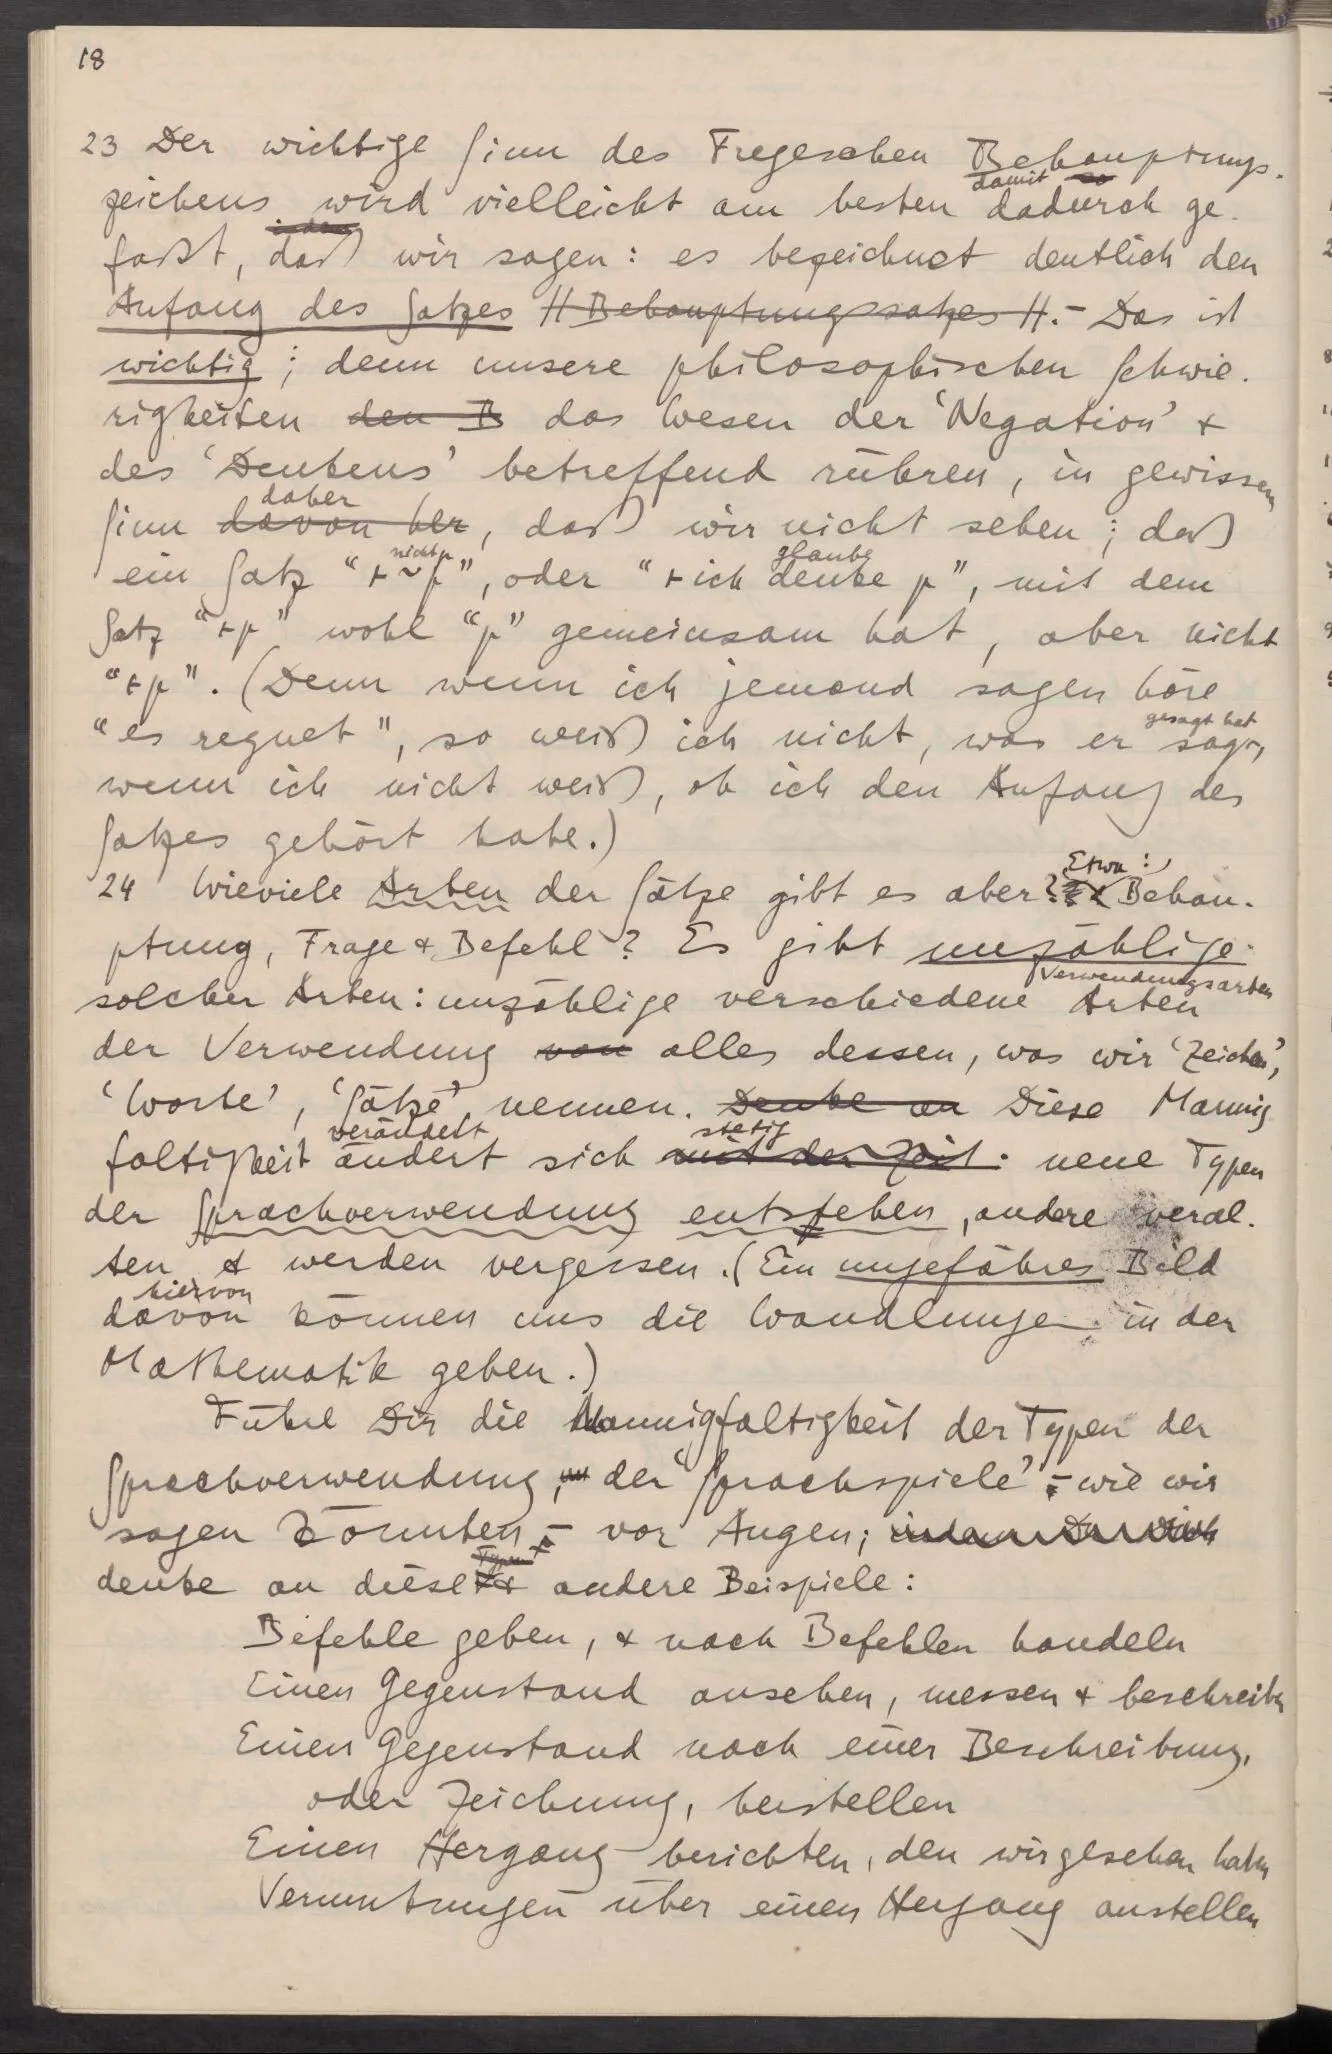 18
23 Der wichtige Sinn des Fregeschen Behauptungs-
damit so
zeichens wird vielleicht am besten dadurch ge-
indem
faßt, daß wir sagen: es bezeichnet deutlich den
Anfang des Satzes // Behauptungssatzes //. – Das ist
wichtig; denn unsere philosophischen Schwie-
rigkeiten den B das Wesen der ‘Negation’ &
des ‘Denkens’ betreffend rühren, in gewissem
daher
Sinn davon her, daß wir nicht sehen; daß
nicht p glaube
ein Satz “⊢ ~p”, oder “⊢ ich denke p”, mit dem
Satz “⊢p” wohl “p” gemeinsam hat, aber nicht
“⊢p”. (Denn wenn ich jemand sagen höre
gesagt hat
“es regnet”, so weiß ich nicht, was er sagt,
wenn ich nicht weiß, ob ich den Anfang des
Satzes gehört habe.)
Etwa:
24 Wieviele Arten der Sätze gibt es aber? Behau-
ptung, Frage & Befehl? Es gibt unzählige
Verwendungsarten
solcher Arten: unzählige verschiedene Arten
der Verwendung von alles dessen, was wir ‘Zeichen’,
‘Worte’, ‘Sätze’, nennen. Denke an Diese Mannig
verändert stetig
faltigkeit ändert sich mit der Zeit. neue Typen
der Sprachverwendung entstehen, andere veral-
ten & werden vergessen. (Ein ungefähres Bild
hiervon
davon können uns die Wandlungen in der
Mathematik geben.)
Führe Dir die Mannigfaltigkeit der Typen der
Sprachverwendung, der ‘Sprachspiele’ – wie wir
sagen könnten – vor Augen; indem Du Dich
Typen
denke an diese & andere Beispiele:
Befehle geben, & nach Befehlen handeln
Einen Gegenstand ansehen, messen & beschreiben
Einen Gegenstand nach einer Beschreibung,
oder Zeichnung, herstellen
Einen Hergang berichten, den wir gesehen haben
Vermutungen über einen Hergang anstellen